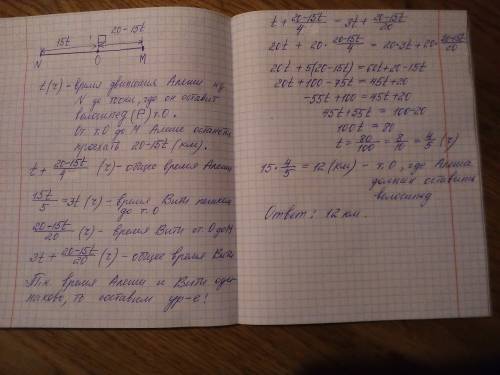 20-15t
15t
N O M
t(ч) - время движения Алёши из
N до точки, где он оставит
велосипед (P) т.О.
От т.О до M Алёше останется
проехать 20-15t (км).
t + (20-15t)/4 (ч) - общее время Алёши
15t/5 = 3t (ч) - время Вити пешком
до т.О
(20-15t)/20 (ч) - время Вити от О до M
3t + (20-15t)/20 (ч) - общее время Вити
Т.к. время Алёши и Вити оди-
наково, то составим ур-е!
t + (20-15t)/4 = 3t + (20-15t)/20
20t + 20 · (20-15t)/4 = 20·3t + 20 · (20-15t)/20
20t + 5(20-15t) = 60t + 20 - 15t
20t + 100 - 75t = 45t + 20
-55t + 100 = 45t + 20
45t + 55t = 100 - 20
100t = 80
t = 80/100 = 8/10 = 4/5 (ч)
15 · 4/5 = 12 (км) - т.О, где Алёша
должен оставить
велосипед
Ответ: 12 км.